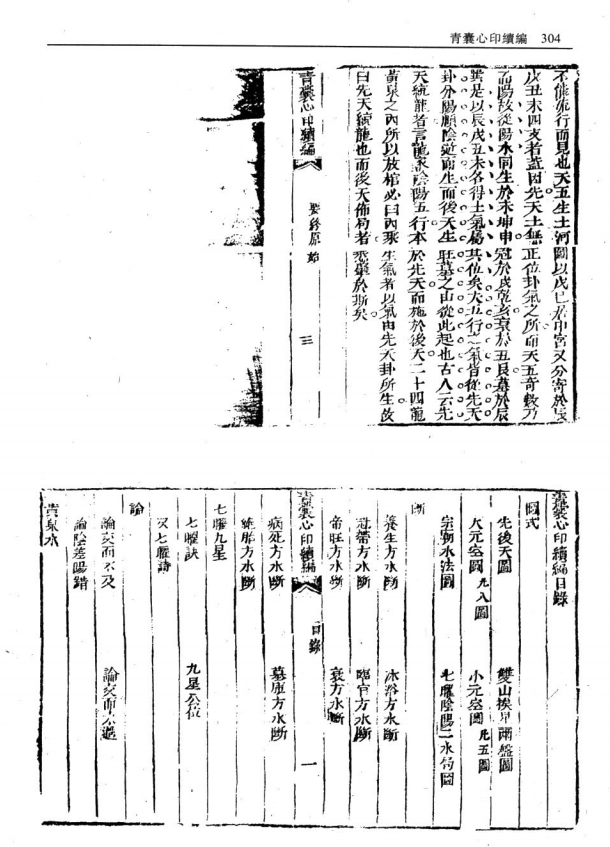 青囊心印續編 304
不能流行而見也天五生土河圖以戊己居中宮又分寄於辰
戌丑未四支者蓋因先天土無正位卦氣之所而天五奇數乃
而陽故從陽水同生於未坤申冠於戌乾亥衰於丑艮墓於辰
巽是以辰戌丑未各得土氣屬其位矣大五行之氣皆從先天
卦分陽順陰逆而生而後天生旺墓之山從此起也古人云先
天統龍者言龍家陰陽五行本於先天而施於後天二十四龍
黃泉之內所以放棺必曰內乘生氣者以氣由先天卦所生故
曰先天統龍也而後天佈局者悉藥於斯矣
青囊心印續編
要終原始
三
青囊心印續編目錄
圖式
先後天圖
雙山挨甲兩盤圖
大元空圖 凡八圖
小元空圖 凡五圖
宗廟水法圖
七曜陰陽二水局圖
斷
養生方水斷
沐浴方水斷
冠帶方水斷
臨官方水斷
帝旺方水斷
衰方水斷
青囊心印續編
目錄
一
病死方水斷
墓庫方水斷
絕胎方水斷
七曜九星
七曜訣
九星公位
又七曜詩
論
論交而不及
論交而不過
論陰差陽錯
黃泉水